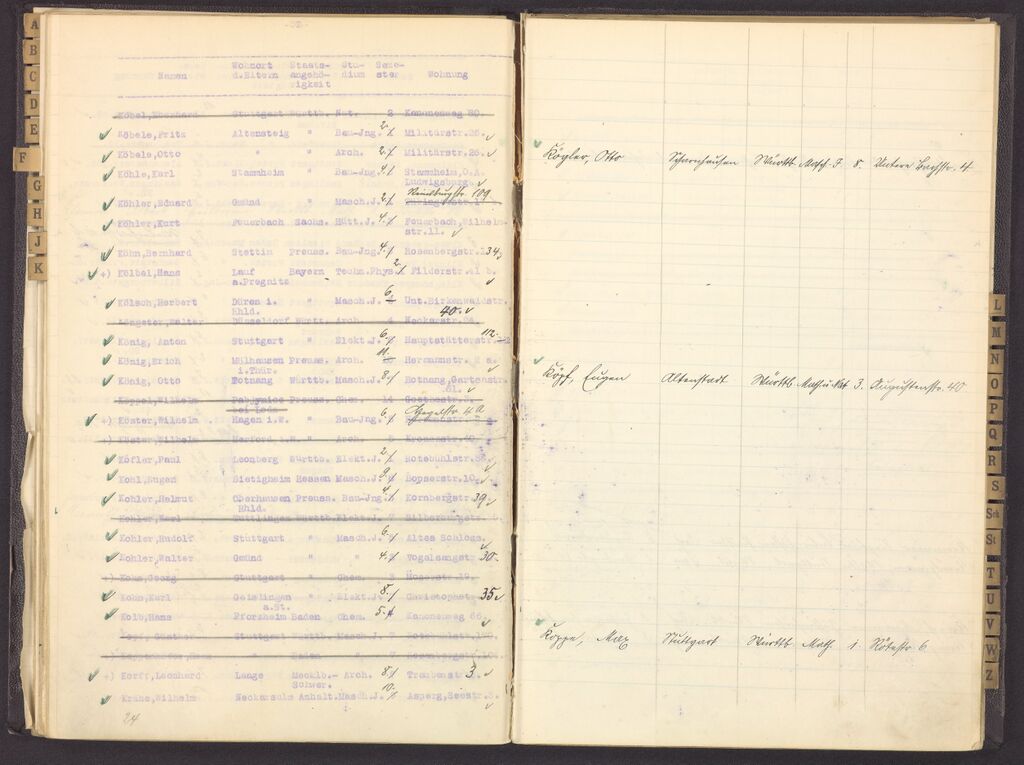 A
B
C
D
E
F
G
H
J
K
-32-
Wohnort Staats- Stu- Seme-
Namen d.Eltern angehö- dium ster Wohnung
rigkeit
Köbel,Eberhard Stuttgart Württb. Nat. 2 Kanonenweg
Köbele,Fritz Altensteig " Bau-Jng. 2 Militärstr.26.
Köbele,Otto " " Arch. 2 Militärstr.26.
Köhle,Karl Stammheim " Bau-Jng. Stammheim,O.A.
Ludwigsburg.
Reinsburgstr. 109
Köhler,Eduard Gmünd " Masch.J.
Köhler,Kurt Feuerbach Sachs. Hütt.J. 4 Feuerbach,Wilhelm-
str.11.
Köhn,Bernhard Stettin Preuss. Bau-Jng. 4 Rosenbergstr.
+) Kölbel,Hans Lauf Bayern Techn.Phys. 2 Filderstr.41 b.
a.Pregnitz
Kölsch,Herbert Düren i. " Masch.J. 6 Unt.Birkenwaldstr.
Rhld. 40.
Düsseldorf Württ. Arch. 4 Neckarstr.
König, Anton Stuttgart " Elekt.J. 6 Hauptstätterstr. 112
König,Erich Mülhausen Preuss. Arch. 11 Hermannstr. a.
i.Thür.
König, Otto Botnang Württb. Masch.J. 8 Botnang,Gartenstr.
61.
Köppel,Wilhelm Pabjanice Preuss. Chem. 14 Goethestr.
bei Lodz
+) Köster,Wilhelm Hagen i.W. " Bau-Jng. 6 Hegelstr. 4A
+) Köster,Wilhelm Herford i.W. " Arch. Kronenstr.
Köfler,Paul Leonberg Württb. Elekt.J. 2 Rotebühlstr.
Kohl,Eugen Bietigheim Hessen Masch.J. Bopserstr.10.
Kohler,Helmut Oberhausen Preuss. Bau-Jng. 4 Kornbergstr. 39
Rhld.
Kohler,Karl Tuttlingen Württb. Elekt.J. Silberburgstr.
Kohler,Rudolf Stuttgart " Masch.J. 6 Altes Schloss.
Kohler,Walter Gmünd " " 4 Vogelsangstr. 30.
+) Kohn,Georg Stuttgart " Chem. Moserstr.19.
Kohn,Karl Geislingen " Elekt.J. 8 Christophstr. 35
a.St.
Kolb,Hans Pforzheim Baden Chem. 5 Kanonenweg 66.
Stuttgart Württb. Masch.J. Rotebühlstr.
Baden "
+) Korff,Leonhard Laage Mecklb.- Arch. 8 Traubenstr. 3.
Schwer.
Krahe,Wilhelm Neckarsulm Anhalt. Masch.J. 10 Asperg,Seestr.8.
24
Kögler, Otto Scharnhausen Württb. Masch.-J. 8. Untere Bachstr. 4
Köpf, Eugen Altenstadt Württb. Math.u.Nat. 3. Augustenstr. 40
Koppe, Max Stuttgart Württb. Math. 1 Rötestr. 6
L
M
N
O
P
Q
R
S
Sch
St
T
U
V
W
Z